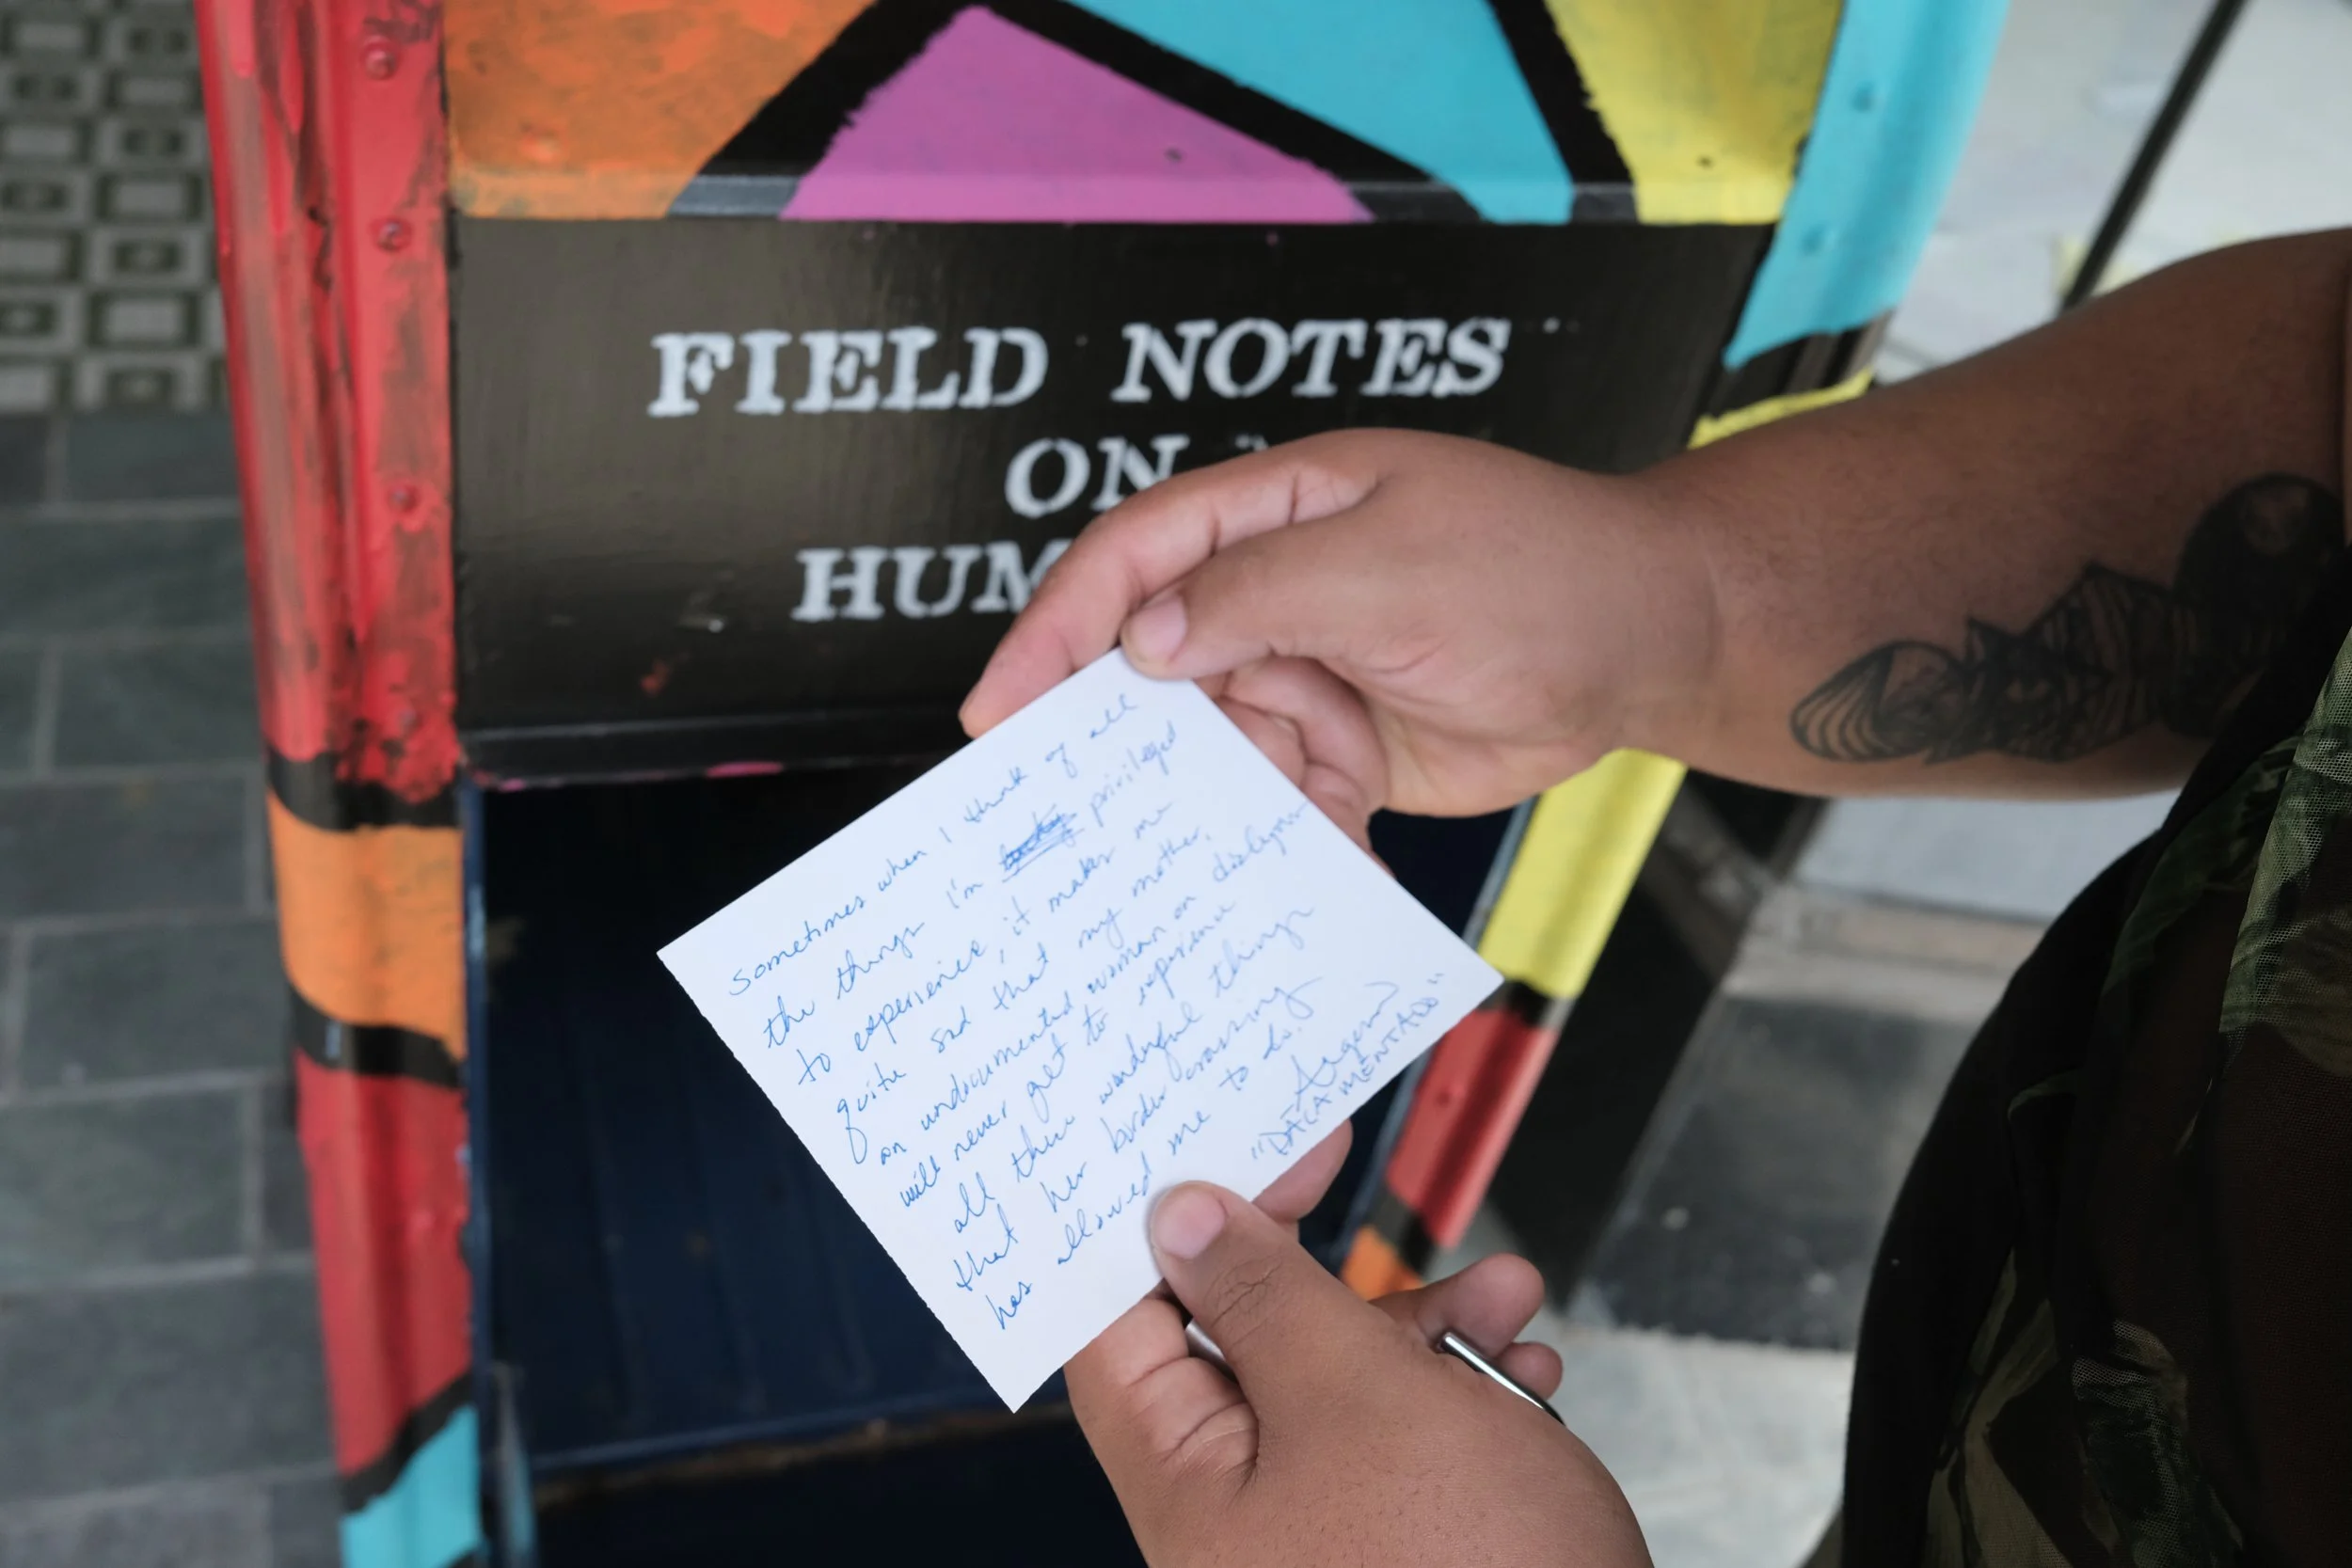 FIELD NOTES
ON
HUM
sometimes when I think of all
the things I'm privileged
to experience, it makes me
quite sad that my mother,
an undocumented woman on dialysis
will never get to experience
all these wonderful things
that her border crossing
has allowed me to do.
"DACAMENTADO"